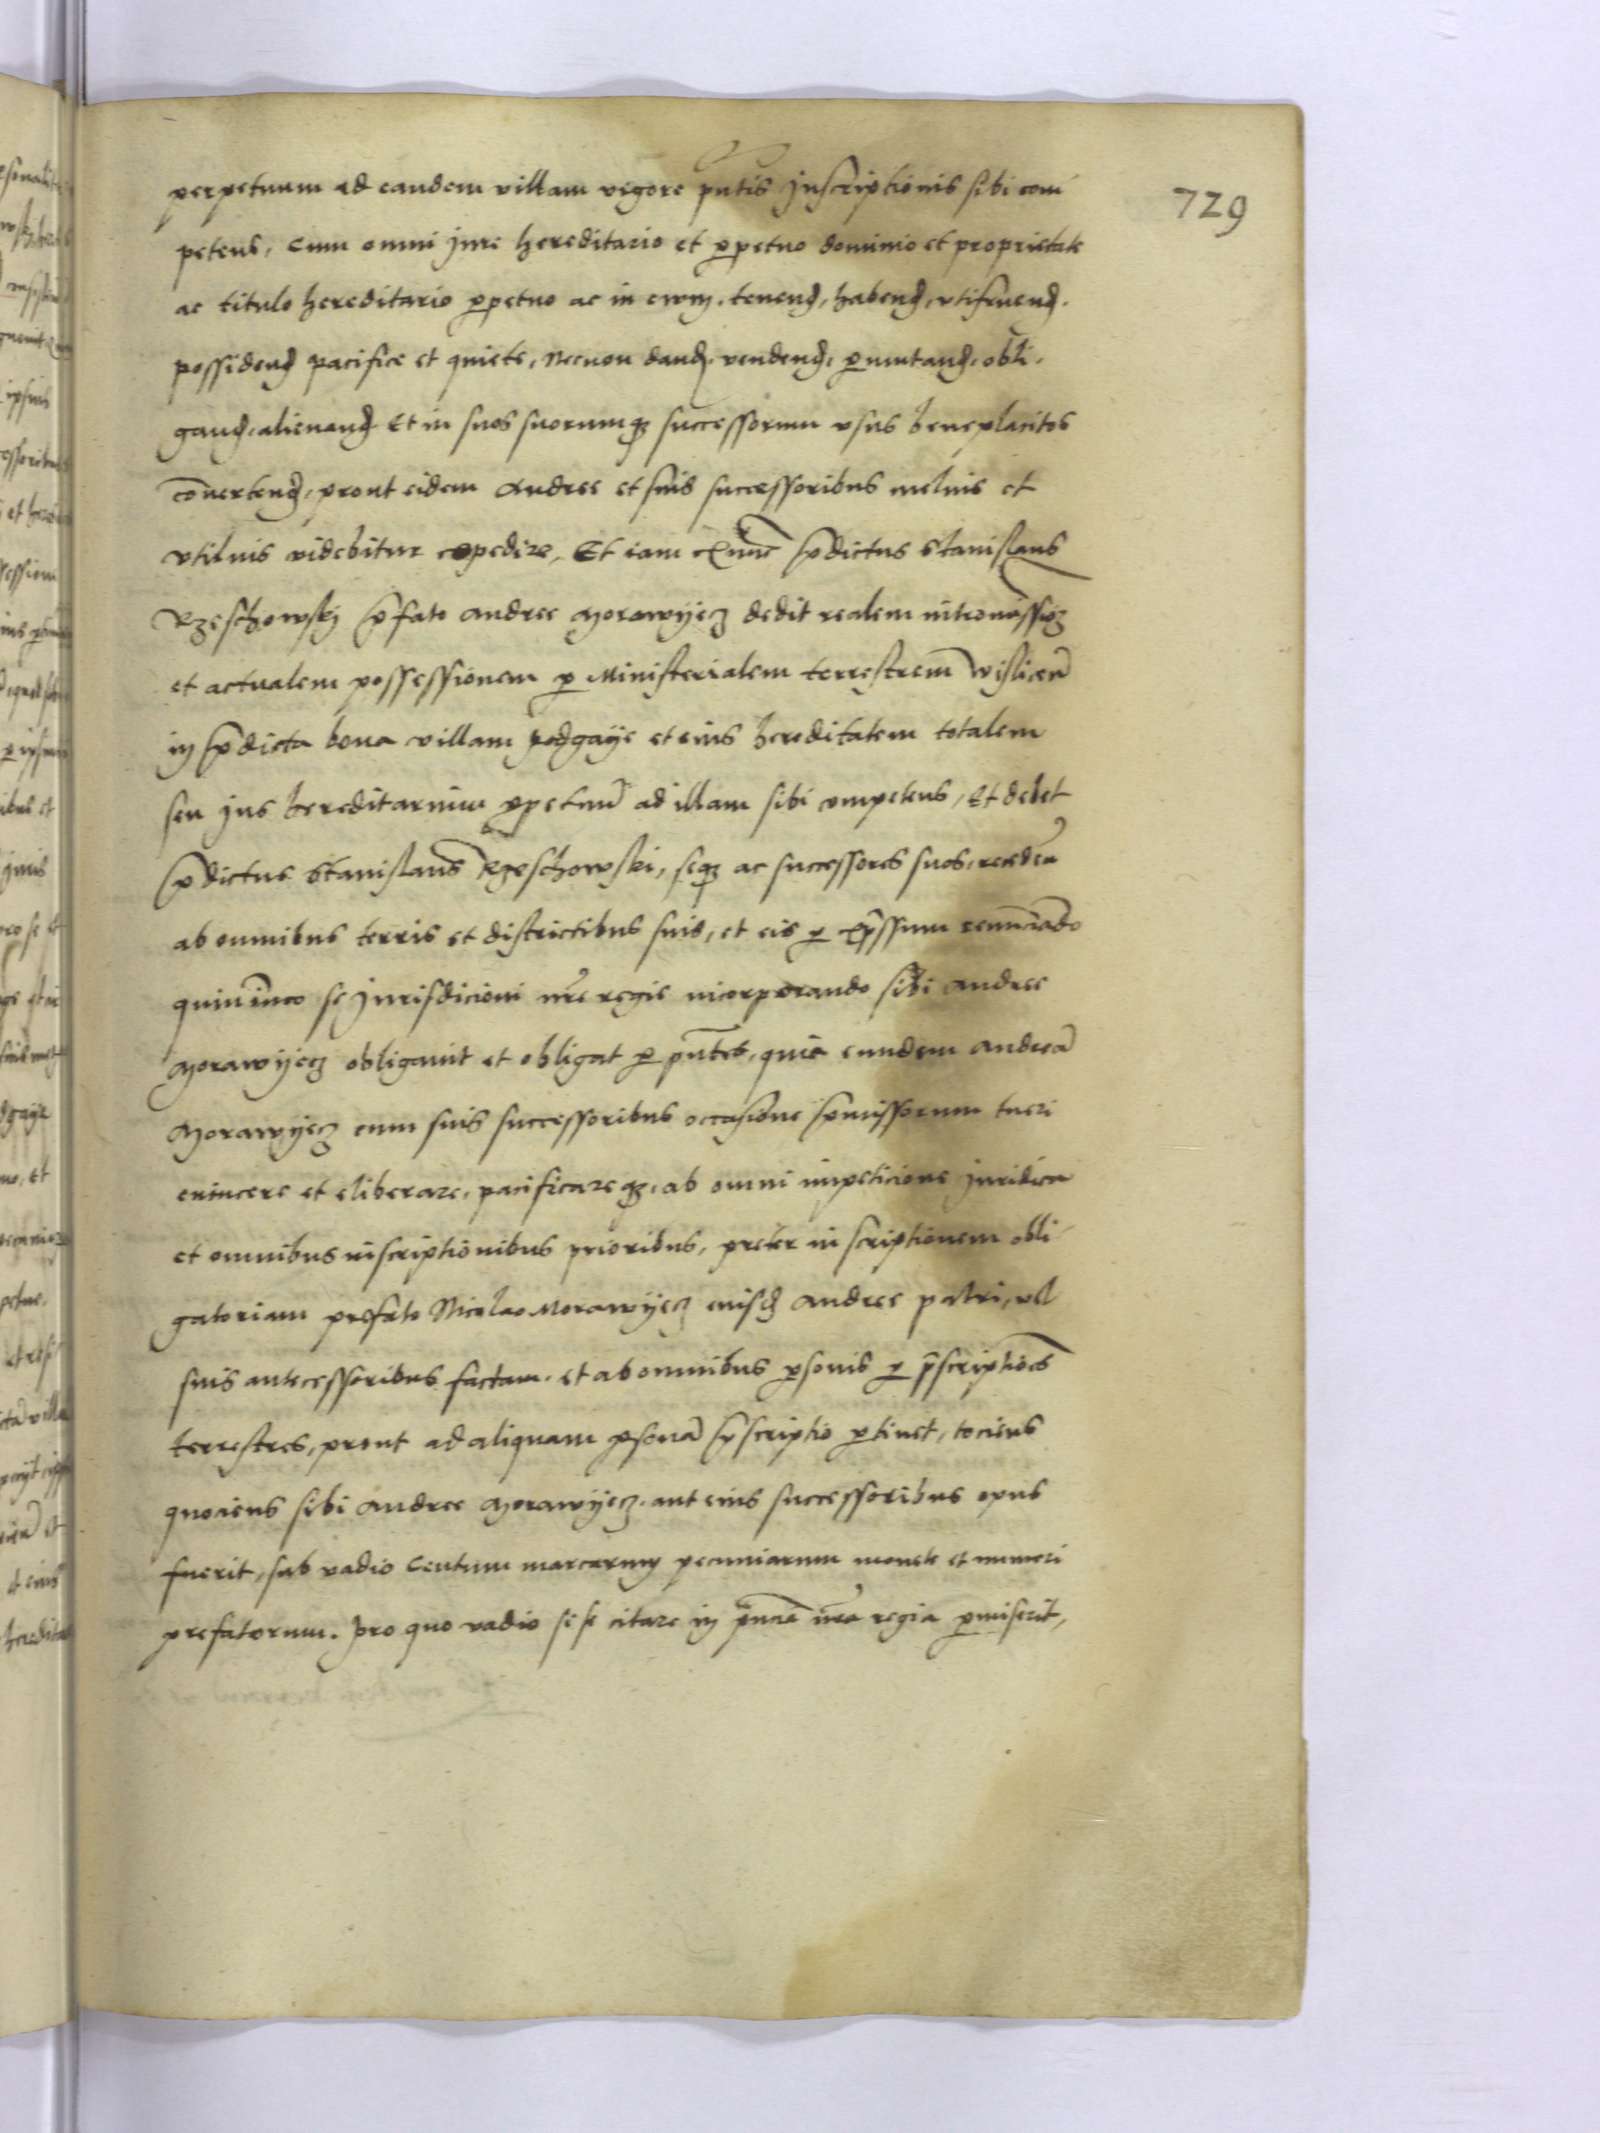 729
perpetuum ad eandem villam vigore pntis Inscriptionis sibi com
petens, Cum omni iure hereditario et ppetuo dominio et proprietate
ac titulo hereditario ppetuo ac in ewm. tenend, habend, vtifruend.
possidend pacifice et quiete, Necnon dand. vendend. pmutand. obli.
gand. alienand Et in suos suorumqz successorum vsus beneplacitos
convertend, prout eidem Andree et suis successoribus melius et
vtilius videbitur expedire. Et iam exnunc pdictus Stanislaus
Rzeschowskj pfato Andree Morawyecz dedit realem intromissioz
et actualem possessionem p Ministerialem terrestrem wislicen
in pdicta bona villam podgaye et eius hereditatem totalem
seu Jus hereditarium ppetuu ad illam sibi competens, Et debet
pdictus Stanislaus Rzeschowski, seqz ac successores suos, receden
ab omnibus terris et districtibus suis, et eis p expssum renunciado
quinimo se Jurisdicioni nre regie incorporando sibi Andree
Morawyecz obligavit et obligat p pntes, quia eundem Andrea
Morawyecz cum suis successoribus occasione pmissorum tueri
evincere et eliberare, pacificareqz, ab omni impeticione Juridica
et omnibus inscriptionibus prioribus, preter in scriptionem obli
gatoriam prefato Nicolao Morawyecz eiusd Andree patri, vel
suis antecessoribus factam. et ab omnibus psonis p pscriptioes
terrestres, prout ad aliquam psona pscriptio ptinet, tociens
quociens sibi Andree Morawyecz. aut eius successoribus opus
fuerit, sub vadio Centum marcarum pecuniarum monete et numeri
prefatorum. Pro quo vadio sese citare in pncia nra regia pmiserit,